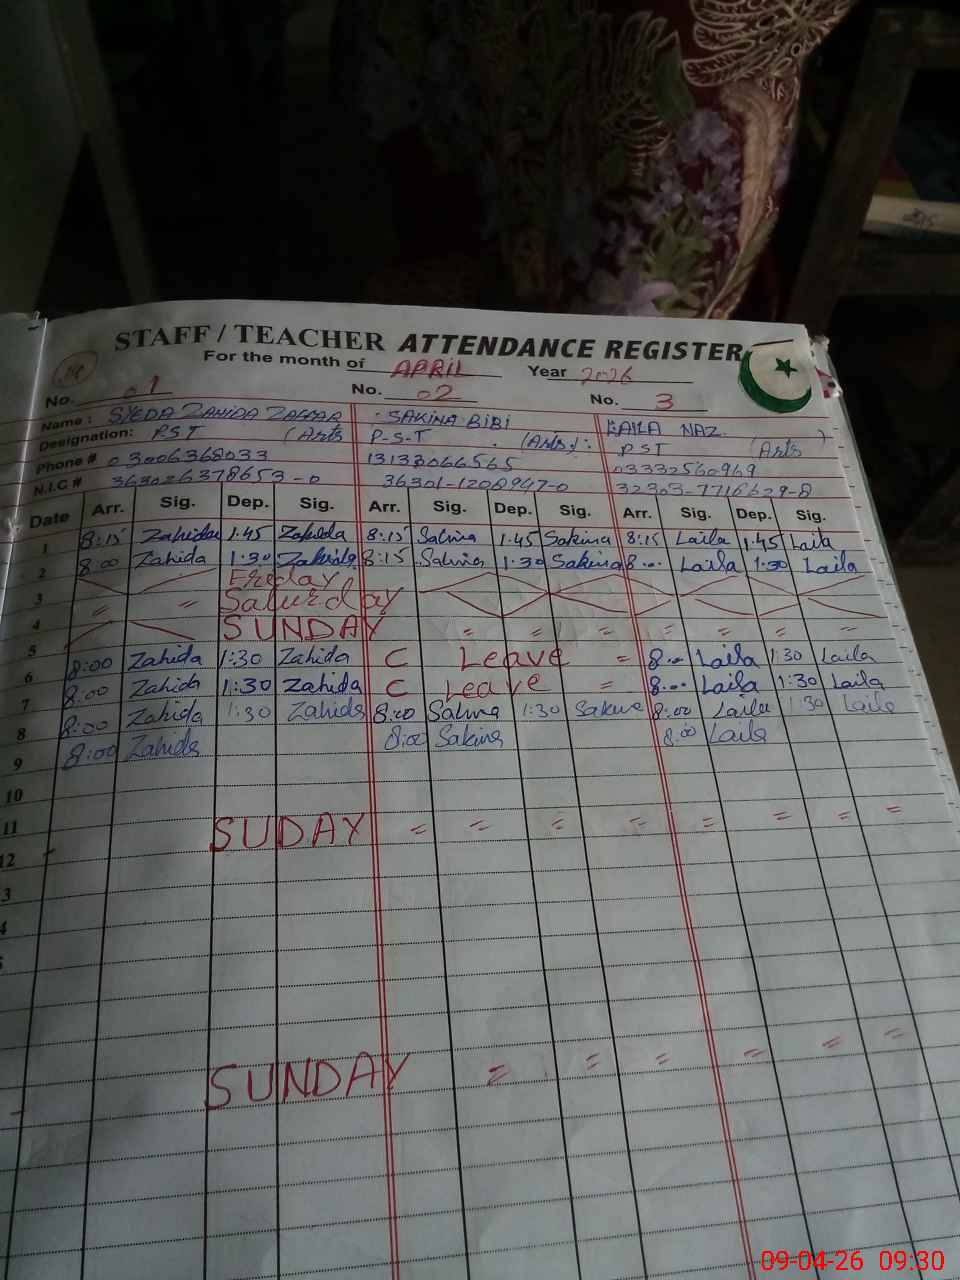 STAFF / TEACHER ATTENDANCE REGISTER
For the month of APRIL Year 2026
No. 01 No. 02 No. 3
Name: SYEDA ZAHIDA ZAFFAR SAKINA BIBI LAILA NAZ
Designation: P.S.T (Arts P-S-T (Arts) PST (Arts)
Phone # 03006368033 13133066565 03332560969
N.I.C # 363026378653-0 36301-1208947-0 32303-7716629-8
Date Arr. Sig. Dep. Sig. Arr. Sig. Dep. Sig. Arr. Sig. Dep. Sig.
1 8:15 Zahida 1:45 Zahida 8:15 Sakina 1:45 Sakina 8:15 Laila 1:45 Laila
2 8:00 Zahida 1:30 Zahida 8:15 Sakina 1:30 Sakina 8.. Laila 1:30 Laila
Friday
3 = = Saturday
4 SUNDAY = = = = = = =
5 8:00 Zahida 1:30 Zahida C Leave = 8.. Laila 1:30 Laila
6 8:00 Zahida 1:30 Zahida C Leave = 8.. Laila 1:30 Laila
7 8:00 Zahida 1:30 Zahida 8:00 Sakina 1:30 Sakina 8:00 Laila 1:30 Laila
8 8:00 Zahida 8:00 Sakina 8:00 Laila
9
10
11 SUDAY = = = = = = = =
12
3
4
SUNDAY = = = = = =
09-04-26 09:30